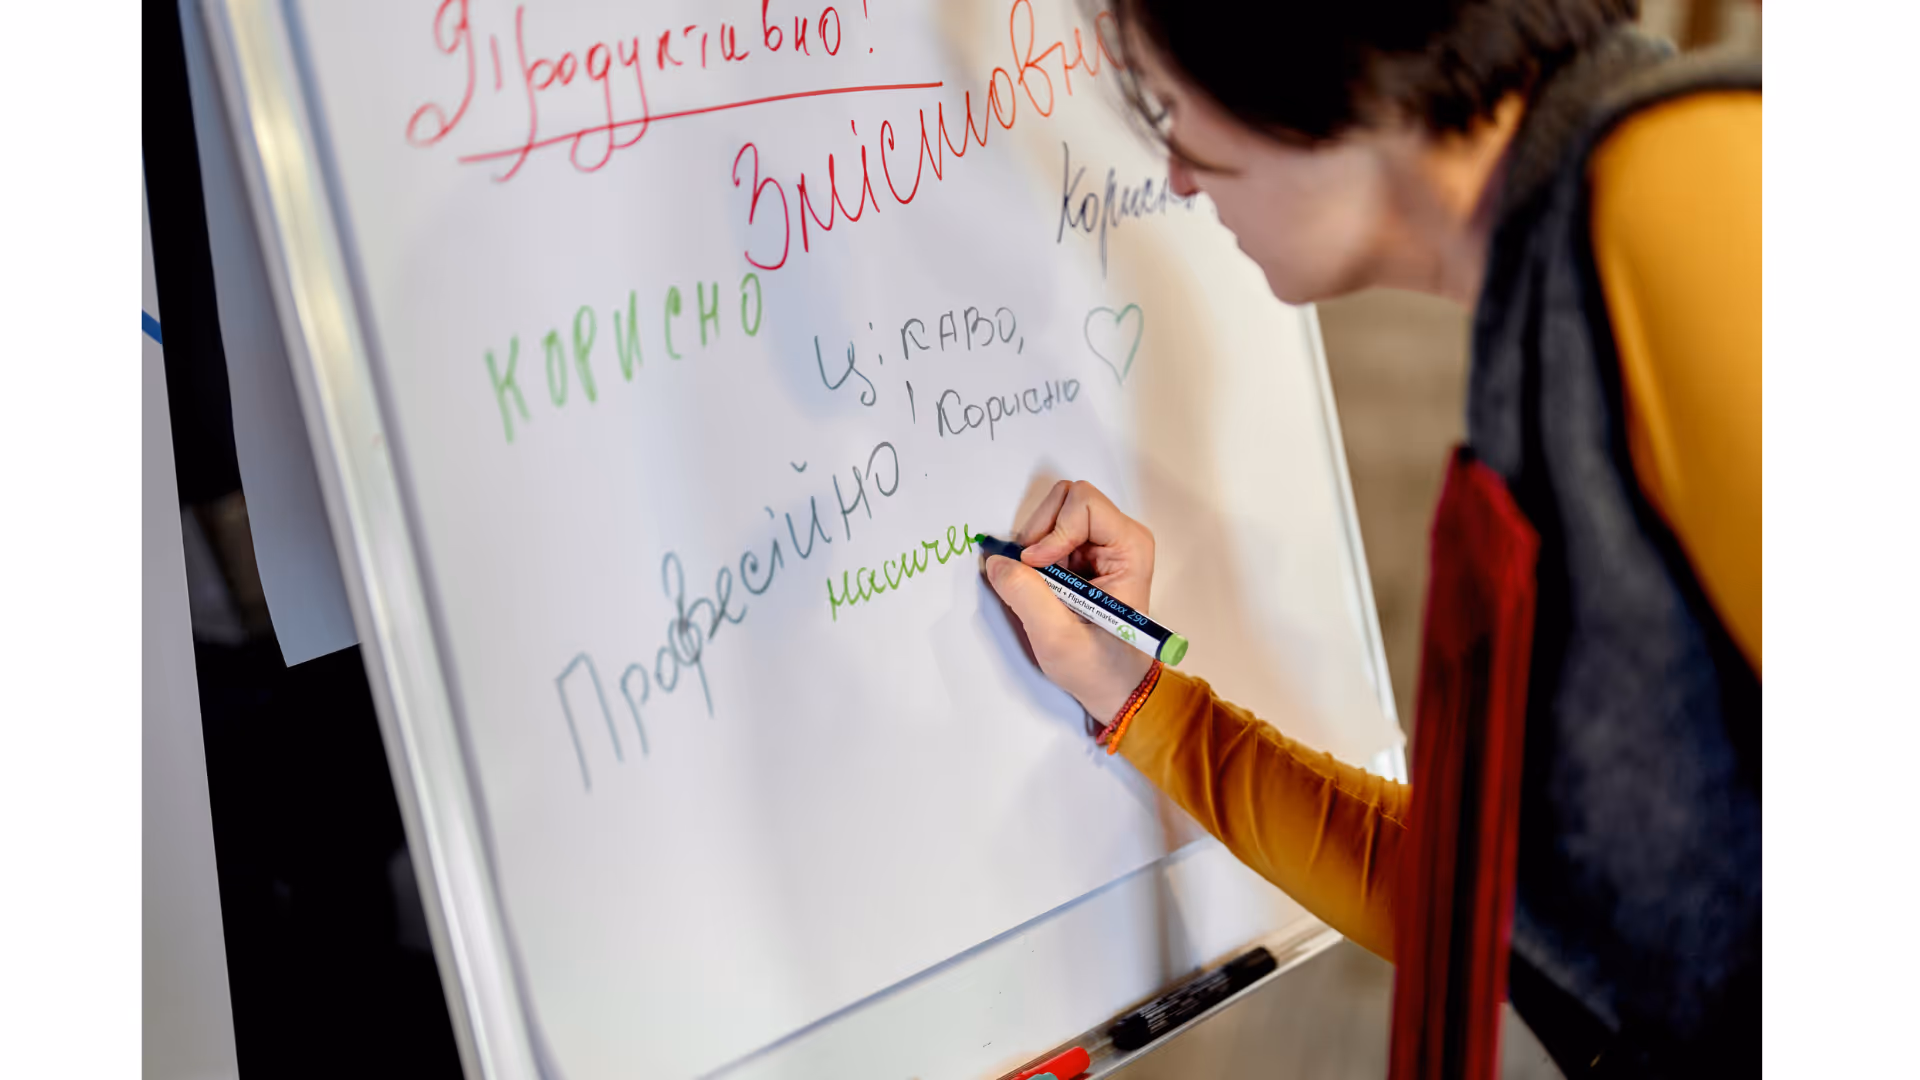 Продуктивно!
Змістовно
Корисно
КОРИСНО
Цікаво,
Корисно
Професійно.
насичен
Schneider Maxx 290
Board + Flipchart marker